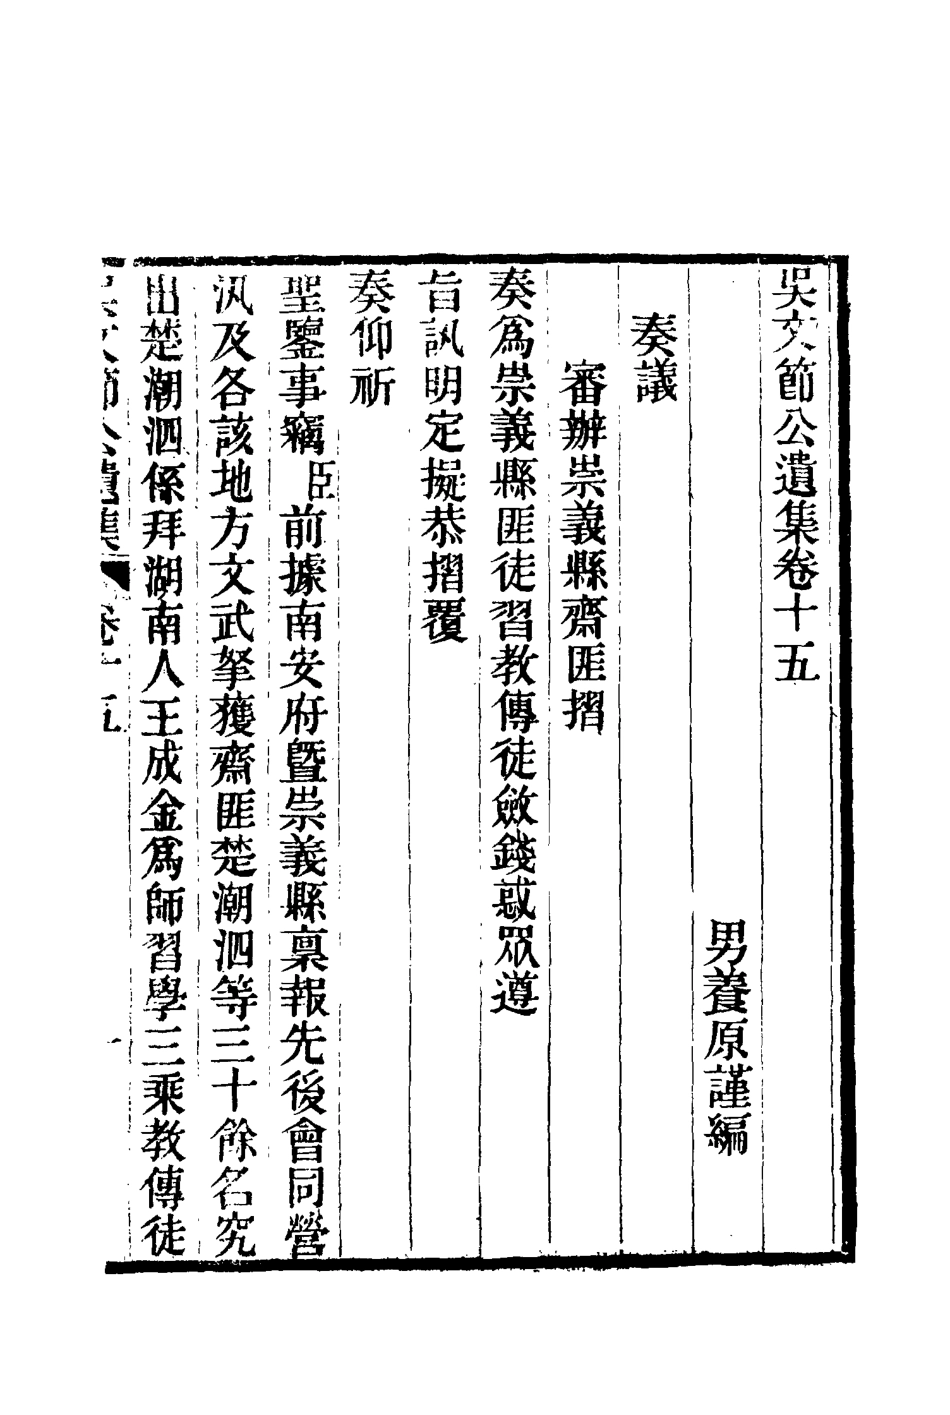 吳文節公遺集卷十五
男養原謹編
奏議
審辦崇義縣齋匪摺
奏爲崇義縣匪徒習教傳徒斂錢惑眾遵
旨訊明定擬恭摺覆
奏仰祈
聖鑒事竊臣前據南安府曁崇義縣稟報先後會同營
汛及各該地方文武拏獲齋匪楚潮泗等三十餘名究
出楚潮泗係拜湖南人王成金爲師習學三乘教傳徒
吳文節公遺集 卷十五 一